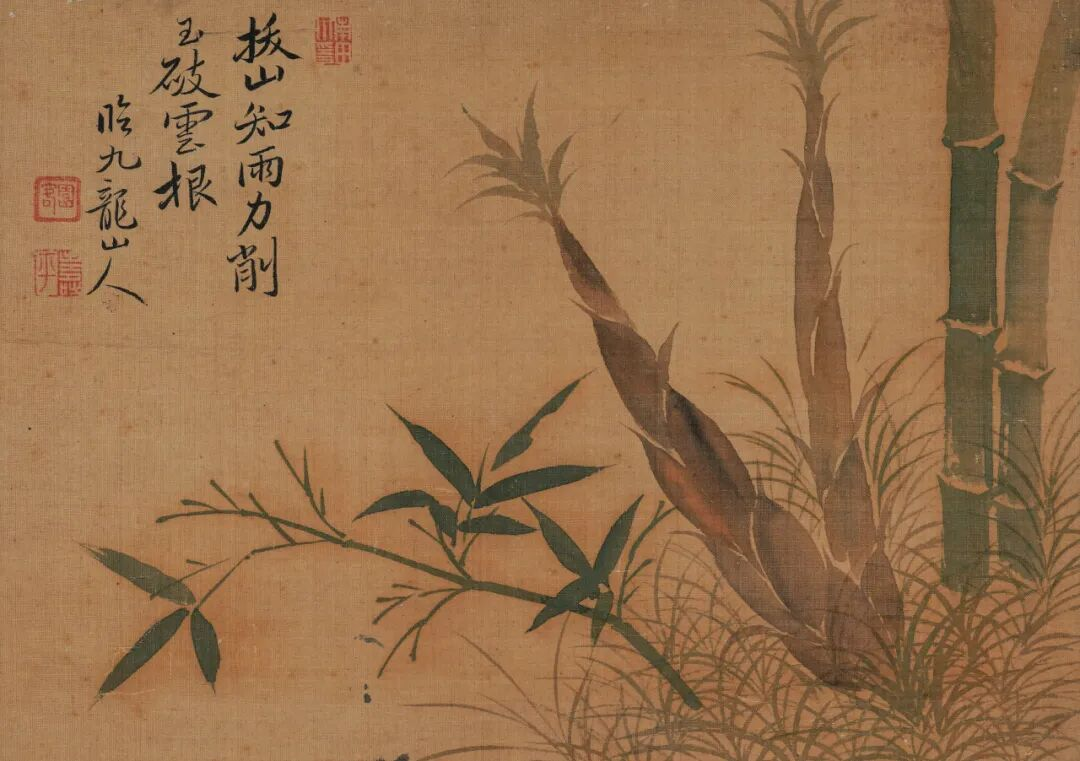 拔山知雨力削
玉破雲根
臨九龍山人